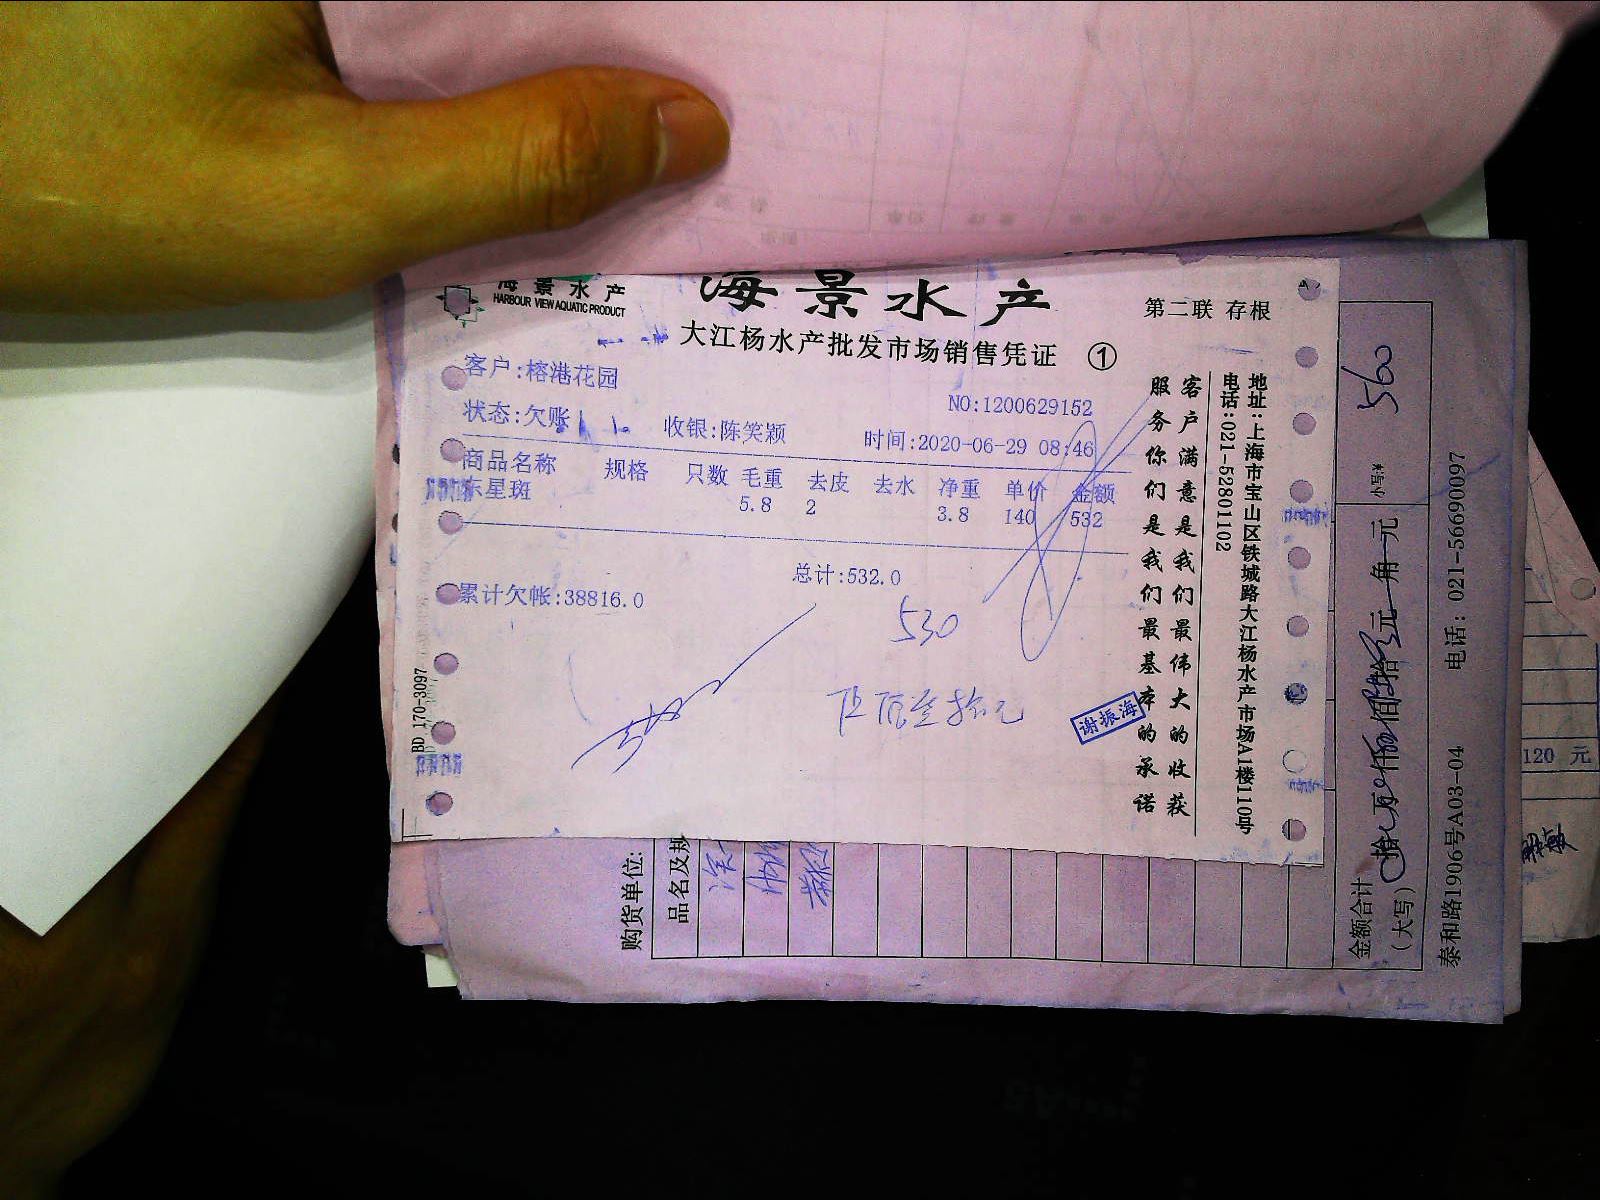 海景水产
HARBOUR VIEW AQUATIC PRODUCT
海景水产
第二联 存根
大江杨水产批发市场销售凭证 ①
客户:榕港花园
NO:1200629152
状态:欠账
收银:陈笑颖
时间:2020-06-29 08:46
商品名称 规格 只数 毛重 去皮 去水 净重 单价 金额
东星斑 5.8 2 3.8 140 532
总计:532.0
累计欠帐:38816.0
530
伍佰叁拾元
谢振海
BD 170-3097
客户满意是我们最伟大的收获
服务你们是我们最基本的承诺
地址:上海市宝山区铁城路大江杨水产市场A1楼110号
电话:021-52801102
购货单位:
品名及规
金额合计
(大写)
拾 万 仟 佰 拾 元 角 元
小写:
560
泰和路1906号A03-04 电话: 021-56690097
120 元